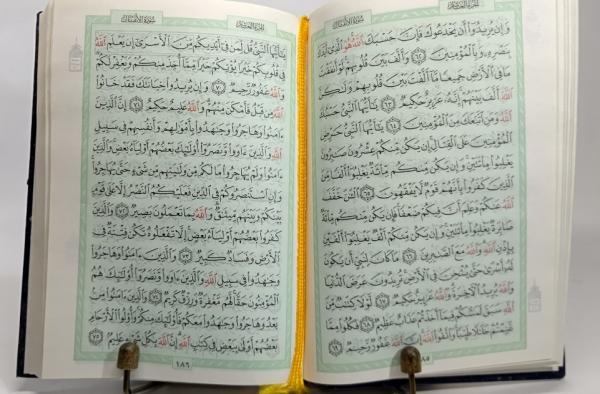 الجزء العاشر
سورة الأنفال
وَإِن يُرِيدُوٓا۟ أَن يَخْدَعُوكَ فَإِنَّ حَسْبَكَ ٱللَّهُ هُوَ ٱلَّذِىٓ أَيَّدَكَ
بِنَصْرِهِۦ وَبِٱلْمُؤْمِنِينَ ٦٢ وَأَلَّفَ بَيْنَ قُلُوبِهِمْ لَوْ أَنفَقْتَ
مَا فِى ٱلْأَرْضِ جَمِيعًا مَّآ أَلَّفْتَ بَيْنَ قُلُوبِهِمْ وَلَٰكِنَّ
ٱللَّهَ أَلَّفَ بَيْنَهُمْ إِنَّهُۥ عَزِيزٌ حَكِيمٌ ٦٣ يَٰٓأَيُّهَا ٱلنَّبِىُّ حَسْبُكَ
ٱللَّهُ وَمَنِ ٱتَّبَعَكَ مِنَ ٱلْمُؤْمِنِينَ ٦٤ يَٰٓأَيُّهَا ٱلنَّبِىُّ حَرِّضِ
ٱلْمُؤْمِنِينَ عَلَى ٱلْقِتَالِ إِن يَكُن مِّنكُمْ عِشْرُونَ صَٰبِرُونَ
يَغْلِبُوا۟ مِا۟ئَتَيْنِ وَإِن يَكُن مِّنكُم مِّا۟ئَةٌ يَغْلِبُوٓا۟ أَلْفًا مِّنَ
ٱلَّذِينَ كَفَرُوا۟ بِأَنَّهُمْ قَوْمٌ لَّا يَفْقَهُونَ ٦٥ ٱلْـَٰٔنَ خَفَّفَ
ٱللَّهُ عَنكُمْ وَعَلِمَ أَنَّ فِيكُمْ ضَعْفًا فَإِن يَكُن مِّنكُم مِّا۟ئَةٌ
صَابِرَةٌ يَغْلِبُوا۟ مِا۟ئَتَيْنِ وَإِن يَكُن مِّنكُمْ أَلْفٌ يَغْلِبُوٓا۟ أَلْفَيْنِ
بِإِذْنِ ٱللَّهِ وَٱللَّهُ مَعَ ٱلصَّٰبِرِينَ ٦٦ مَا كَانَ لِنَبِىٍّ أَن يَكُونَ
لَهُۥٓ أَسْرَىٰ حَتَّىٰ يُثْخِنَ فِى ٱلْأَرْضِ تُرِيدُونَ عَرَضَ ٱلدُّنْيَا
وَٱللَّهُ يُرِيدُ ٱلْـَٔاخِرَةَ وَٱللَّهُ عَزِيزٌ حَكِيمٌ ٦٧ لَّوْلَا كِتَٰبٌ مِّنَ
ٱللَّهِ سَبَقَ لَمَسَّكُمْ فِيمَآ أَخَذْتُمْ عَذَابٌ عَظِيمٌ ٦٨ فَكُلُوا۟ مِمَّا
غَنِمْتُمْ حَلَٰلًا طَيِّبًا وَٱتَّقُوا۟ ٱللَّهَ إِنَّ ٱللَّهَ غَفُورٌ رَّحِيمٌ ٦٩
٨٥
الجزء العاشر
سورة الأنفال
يَٰٓأَيُّهَا ٱلنَّبِىُّ قُل لِّمَن فِىٓ أَيْدِيكُم مِّنَ ٱلْأَسْرَىٰٓ إِن يَعْلَمِ ٱللَّهُ
فِى قُلُوبِكُمْ خَيْرًا يُؤْتِكُمْ خَيْرًا مِّمَّآ أُخِذَ مِنكُمْ وَيَغْفِرْ لَكُمْ
وَٱللَّهُ غَفُورٌ رَّحِيمٌ ٧٠ وَإِن يُرِيدُوا۟ خِيَانَتَكَ فَقَدْ خَانُوا۟
ٱللَّهَ مِن قَبْلُ فَأَمْكَنَ مِنْهُمْ وَٱللَّهُ عَلِيمٌ حَكِيمٌ ٧١ إِنَّ ٱلَّذِينَ
ءَامَنُوا۟ وَهَاجَرُوا۟ وَجَٰهَدُوا۟ بِأَمْوَٰلِهِمْ وَأَنفُسِهِمْ فِى سَبِيلِ
ٱللَّهِ وَٱلَّذِينَ ءَاوَوا۟ وَّنَصَرُوٓا۟ أُو۟لَٰٓئِكَ بَعْضُهُمْ أَوْلِيَآءُ بَعْضٍ وَٱلَّذِينَ
ءَامَنُوا۟ وَلَمْ يُهَاجِرُوا۟ مَا لَكُم مِّن وَلَٰيَتِهِم مِّن شَىْءٍ حَتَّىٰ يُهَاجِرُوا۟
وَإِنِ ٱسْتَنصَرُوكُمْ فِى ٱلدِّينِ فَعَلَيْكُمُ ٱلنَّصْرُ إِلَّا عَلَىٰ قَوْمٍۭ
بَيْنَكُمْ وَبَيْنَهُم مِّيثَٰقٌ وَٱللَّهُ بِمَا تَعْمَلُونَ بَصِيرٌ ٧٢ وَٱلَّذِينَ
كَفَرُوا۟ بَعْضُهُمْ أَوْلِيَآءُ بَعْضٍ إِلَّا تَفْعَلُوهُ تَكُن فِتْنَةٌ فِى
ٱلْأَرْضِ وَفَسَادٌ كَبِيرٌ ٧٣ وَٱلَّذِينَ ءَامَنُوا۟ وَهَاجَرُوا۟
وَجَٰهَدُوا۟ فِى سَبِيلِ ٱللَّهِ وَٱلَّذِينَ ءَاوَوا۟ وَّنَصَرُوٓا۟ أُو۟لَٰٓئِكَ هُمُ
ٱلْمُؤْمِنُونَ حَقًّا لَّهُم مَّغْفِرَةٌ وَرِزْقٌ كَرِيمٌ ٧٤ وَٱلَّذِينَ ءَامَنُوا۟ مِنۢ
بَعْدُ وَهَاجَرُوا۟ وَجَٰهَدُوا۟ مَعَكُمْ فَأُو۟لَٰٓئِكَ مِنكُمْ وَأُو۟لُوا۟ ٱلْأَرْحَامِ
بَعْضُهُمْ أَوْلَىٰ بِبَعْضٍ فِى كِتَٰبِ ٱللَّهِ إِنَّ ٱللَّهَ بِكُلِّ شَىْءٍ عَلِيمٌۢ ٧٥
١٨٦